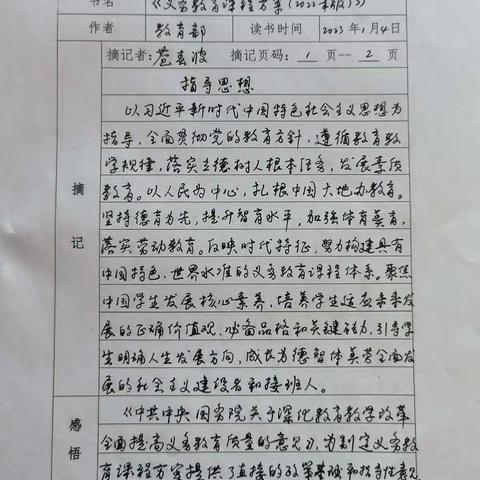 书名 《义务教育课程方案(2022年版)》
作者 教育部 读书时间 2023年1月4日
摘记者：苍春波 摘记页码：1 页--2 页
摘记
指导思想
以习近平新时代中国特色社会主义思想为
指导，全面贯彻党的教育方针，遵循教育教
学规律，落实立德树人根本任务，发展素质
教育。以人民为中心，扎根中国大地办教育。
坚持德育为先，提升智育水平，加强体育美育，
落实劳动教育。反映时代特征，努力构建具有
中国特色、世界水准的义务教育课程体系。聚焦
中国学生发展核心素养，培养学生适应未来发
展的正确价值观、必备品格和关键能力，引导学
生明确人生发展方向，成长为德智体美劳全面发
展的社会主义建设者和接班人。
感悟
《中共中央国务院关于深化教育教学改革
全面提高义务教育质量的意见》，为制定义务教
育课程方案提供了直接的政策基础和指导性意见